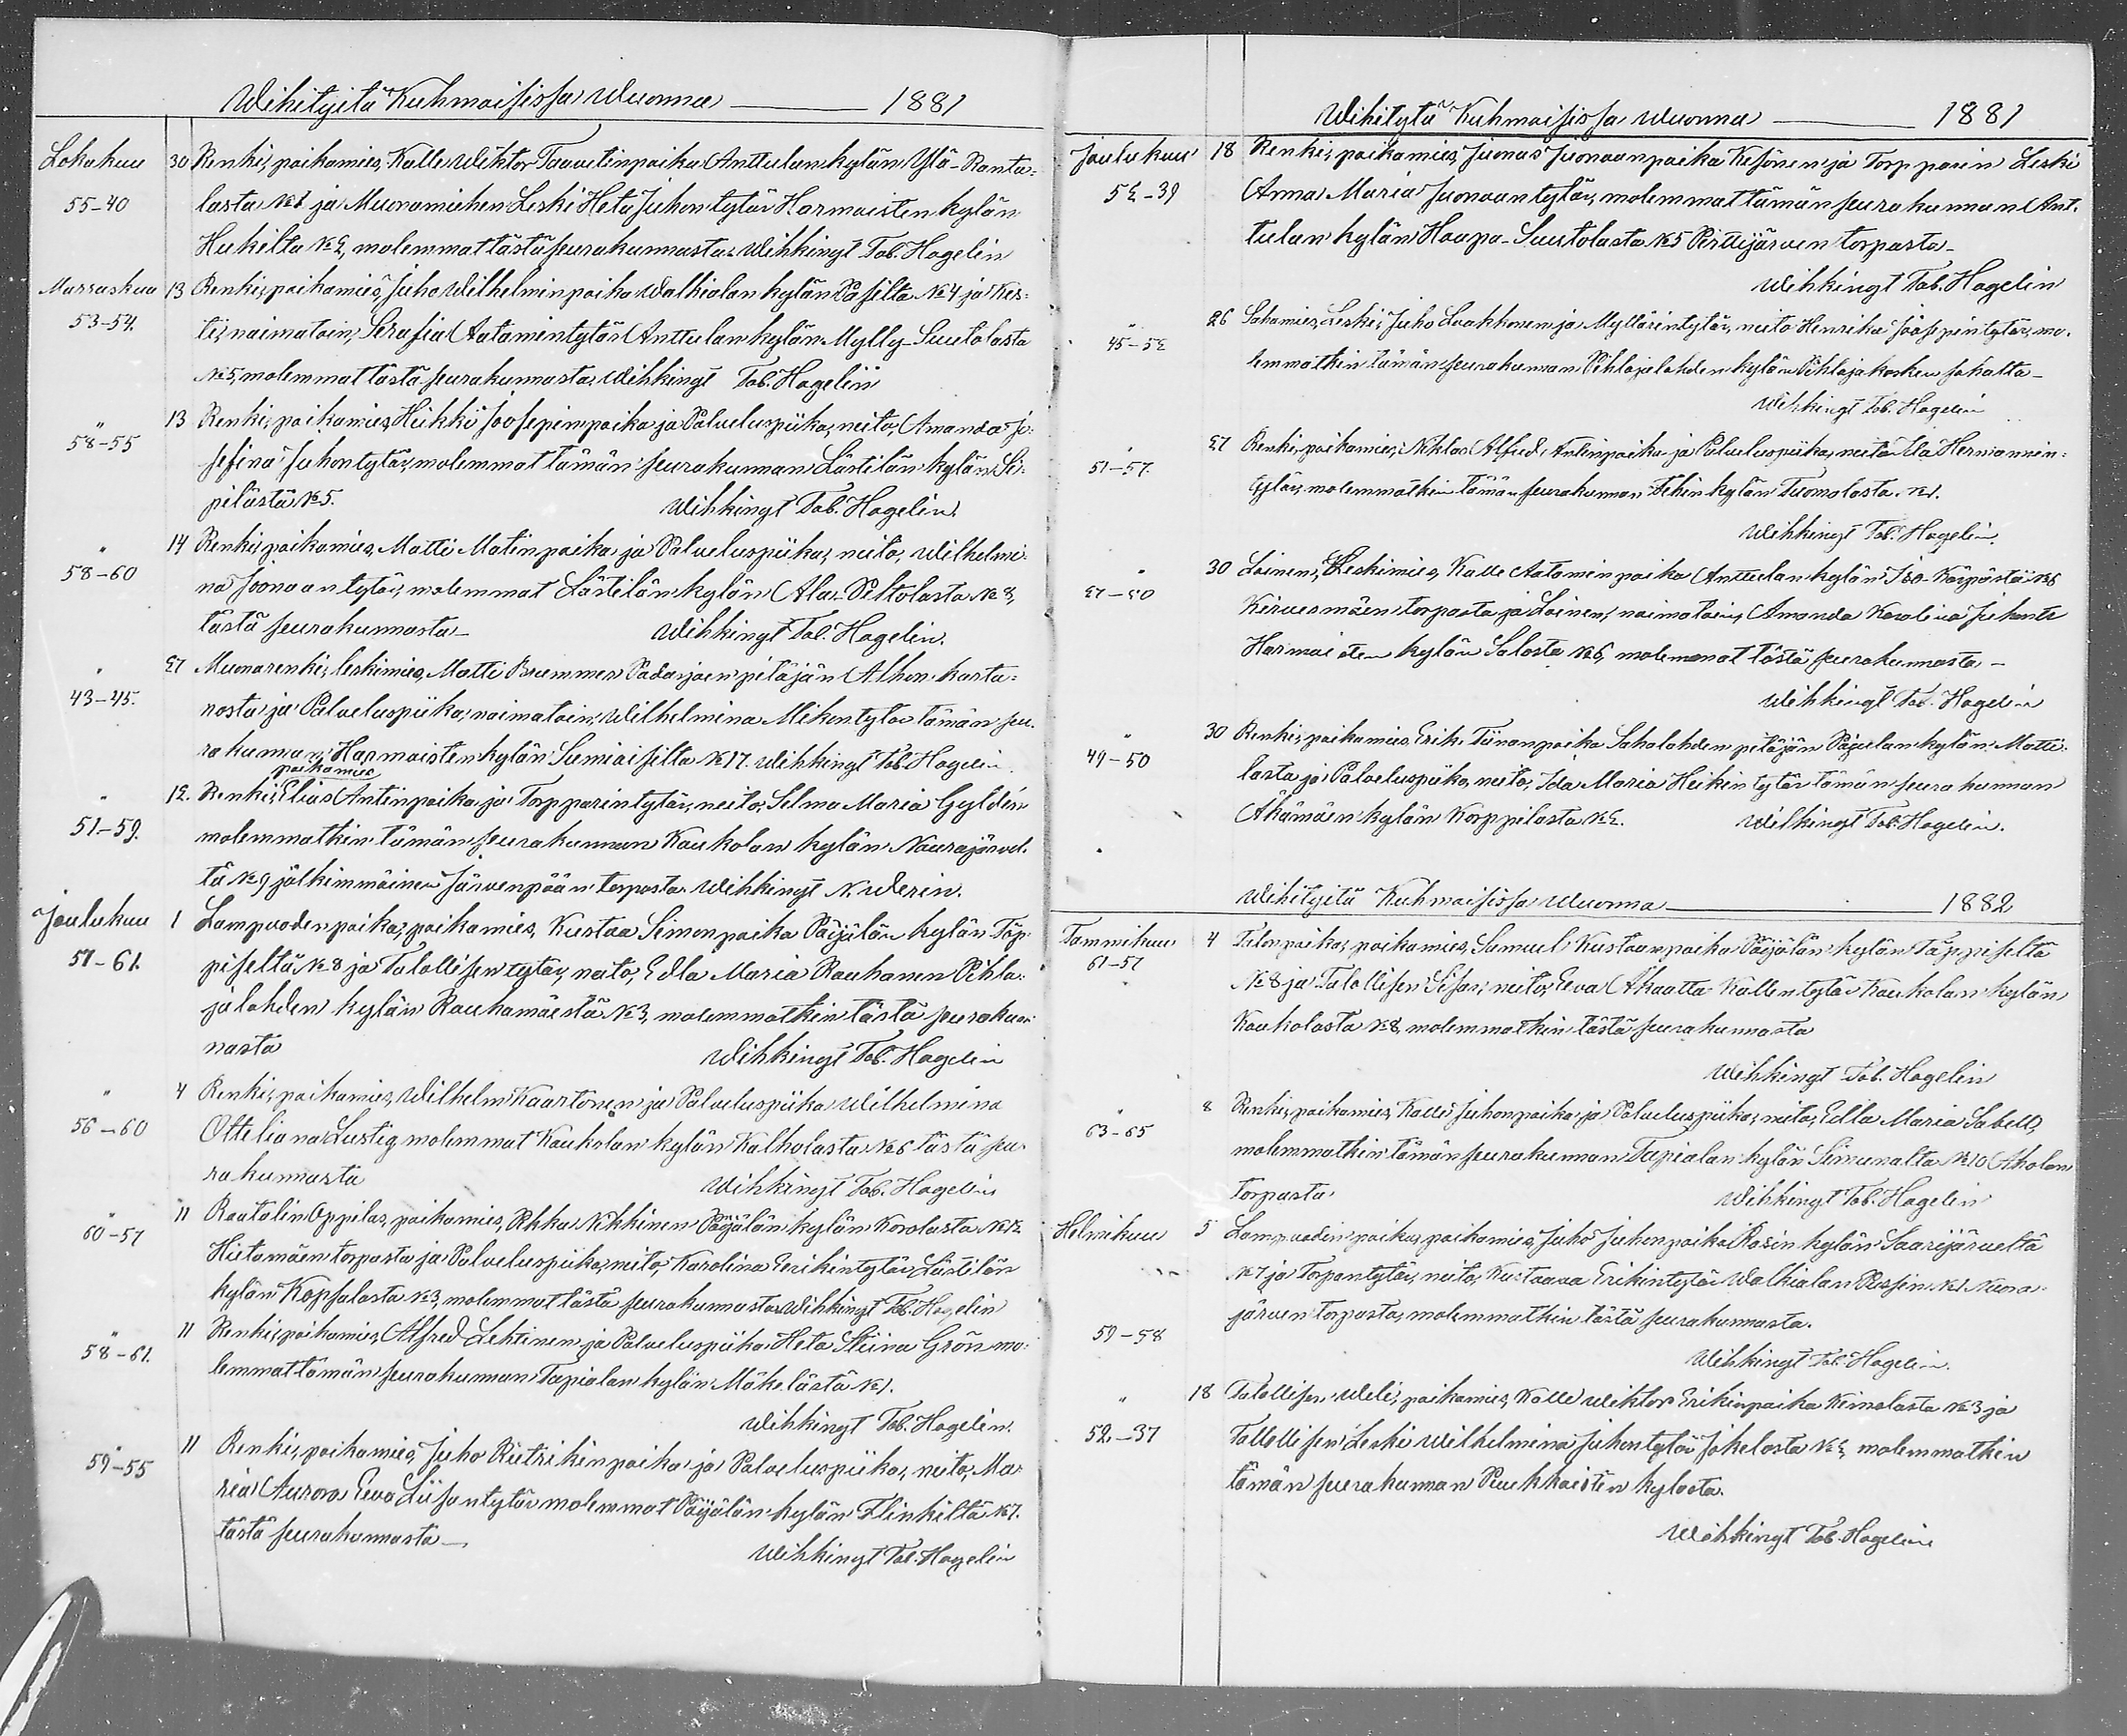 Wihityitä Kuhmoisissa Wuonna 1881
Lokakuu 30 Renki, poikamies, Kalle Wiktor Taavetinpoika Anttulan kylän Ylä-Ranta-
55-40 lasta №1 ja Muonamiehen Leski Heta Juhon tytär Harmoisten kylän
Hukilta №2, molemmat tästä seurakunnasta. Wihkinyt Tob. Hagelin
Marraskuu 13 Renki, poikamies, Juho Wilhelminpoika Walkialan kylän Päsiltä №4 ja Kes-
53-54. ti, naimatoin, Serafia Aatamintytär Anttulan kylän Mylly-Suutolasta
№5, molemmat tästä seurakunnasta, Wihkinyt Tob. Hagelin
" 13 Renki, poikamies, Heikki Joosepinpoika ja Palveluspiika, neito, Amanda Jo-
58-55 sefina Juhontytär, molemmat tämän seurakunnan Lästilän kylän Se-
pilästä №5. Wihkinyt Tob. Hagelin.
" 14 Renki, poikamies, Matti Matinpoika ja Palveluspiika, neito, Wilhelmi-
58-60 na Joonaan tytär, molemmat Lästilän kylän Ala-Peltolasta №8,
tästä seurakunnasta- Wihkinyt Tob. Hagelin.
" 27 Muonarenki, leskimies, Matti Brummer Padasjoen pitäjän Alhon karta-
43-45. nosta ja Palveluspiika, naimatoin, Wilhelmina Mikontytär tämän seu-
rakunnan Harmoisten kylän Sumiaisilta №17. Wihkinyt Tob. Hagelin
poikamies
" 12. Renki, Elias Antinpoika ja Torpparintytär, neito, Selma Maria Gyldén
51-59. molemmatkin tämän seurakunnan Kaukolan kylän Naurajärvel-
tä №9 jälkimmäinen Järvenpään torpasta. Wihkinyt N. Werin.
Joulukuu 1 Lampuodin poika, poikamies, Kustaa Simonpoika Päijälän kylän Täp-
57-61. piseltä №8 ja Talollisen tytär, neito, Edla Maria Rauhanen Pihla-
jalahden kylän Rauhamäestä №3, molemmatkin tästä seurakun-
nasta Wihkinyt Tob. Hagelin
" 4 Renki, poikamies, Wilhelm Kaartonen ja Palveluspiika Wilhelmina
56-60 Otteliana Lustig molemmat Kaukolan kylän Kalholasta №6 tästä seu-
rakunnasta Wihkinyt Tob. Hagelin
" 11 Räätälin Oppilas, poikamies, Pekka Nikkinen Päijälän kylän Korolasta №12
60-57 Hietamäen torpasta ja Palveluspiika, neito, Karolina Erikintytär, Lästilän
kylän Kopsalasta №3, molemmat tästä seurakunnasta. Wihkinyt Tob. Hagelin
" 11 Renki, poikamies, Alfred Lehtinen ja Palveluspiika Heta Stiina Grön mo-
58-61. lemmat tämän seurakunnan Tapialan kylän Mäkelästä №1.
Wihkinyt Tob. Hagelin.
" 11 Renki, poikamies, Juho Rietrikinpoika ja Palveluspiika, neito, Ma-
59-55 ria Aurora Eeva Liisantytär molemmat Päijälän kylän Flinkiltä №7.
tästä seurakunnasta- Wihkinyt Tob. Hagelin
Wihityitä Kuhmoisissa Wuonna 1881
Joulukuu 18 Renki, poikamies, Juonas Juonaanpoika Kesönen ja Torpparin Leski
52-39 Anna Maria Juonaantytär, molemmat tämän seurakunnan Ant-
tulan kylän Haapa-Suutolasta №5 Perttijärven torpasta-
Wihkinyt Tob. Hagelin
" 26 Sahamies, Leski, Juho Laakkonen ja Myllärintytär, neito Henrika Joosepintytär, mo-
45-52 lemmatkin tämän seurakunnan Pihlajalahden kylän Pihlajakosken sahalta-
Wihkinyt Tob. Hagelin
" 27 Renki, poikamies, Niklas Alfred Antinpoika ja Palveluspiika, neito Ida Hermannin-
51-57. tytär, molemmatkin tämän seurakunnan Tehin kylän Tuomolasta. №1.
Wihkinyt Tob. Hagelin.
" 30 Loinen, Leskimies, Kalle Aatominpoika Anttulan kylän Iso-Kärpästä №6
27-50 Kirvesmäen torpasta ja Loinen, naimatoin, Amanda Karolina Juhontr
Harmoisten kylän Salosta №6, molemmat tästä seurakunnasta-
Wihkinyt Tob. Hagelin
" 30 Renki, poikamies, Erik Tiinanpoika Sahalahden pitäjän Pajulan kylän Matti-
49-50 lasta ja Palveluspiika, neito, Ida Maria Heikintytär tämän seurakunnan
Äkämäen kylän Korppilasta №2. Wihkinyt Tob. Hagelin.
Wihityitä Kuhmoisissa Wuonna 1882
Tammikuu 4 Talonpoika, poikamies, Samuel Kustaanpoika Päijälän kylän Täppiseltä
61-57 №8 ja Talollisen Sisar, neito, Eeva Akaatta Kallentytär Kaukolan kylän
Kaukolasta №8, molemmatkin tästä seurakunnasta
Wihkinyt Tob. Hagelin
" 8 Renki, poikamies, Kalle Juhonpoika ja Palveluspiika, neito, Edla Maria Sabell,
63-65 molemmatkin tämän seurakunnan Tapialan kylän Simunalta №10 Aholan
torpasta. Wihkinyt Tob. Hagelin
Helmikuu 5 Lampuodin poika, poikamies, Juho Juhonpoika kylän Saarijärveltä
№7 ja Torpantytär, neito, Kustaava Erikintytär Walkialan №1
59-58 järven torpasta, molemmatkin tästä seurakunnasta.
Wihkinyt Tob. Hagelin.
" 18 Talollisen Weli, poikamies, Kalle Wiktor Erikinpoika Keinolasta №3 ja
52-37 Talollisen Leski Wilhelmina Juhontytär Jokelasta №2, molemmatkin
tämän seurakunnan Ruokkaisten kylästä.
Wihkinyt Tob. Hagelin